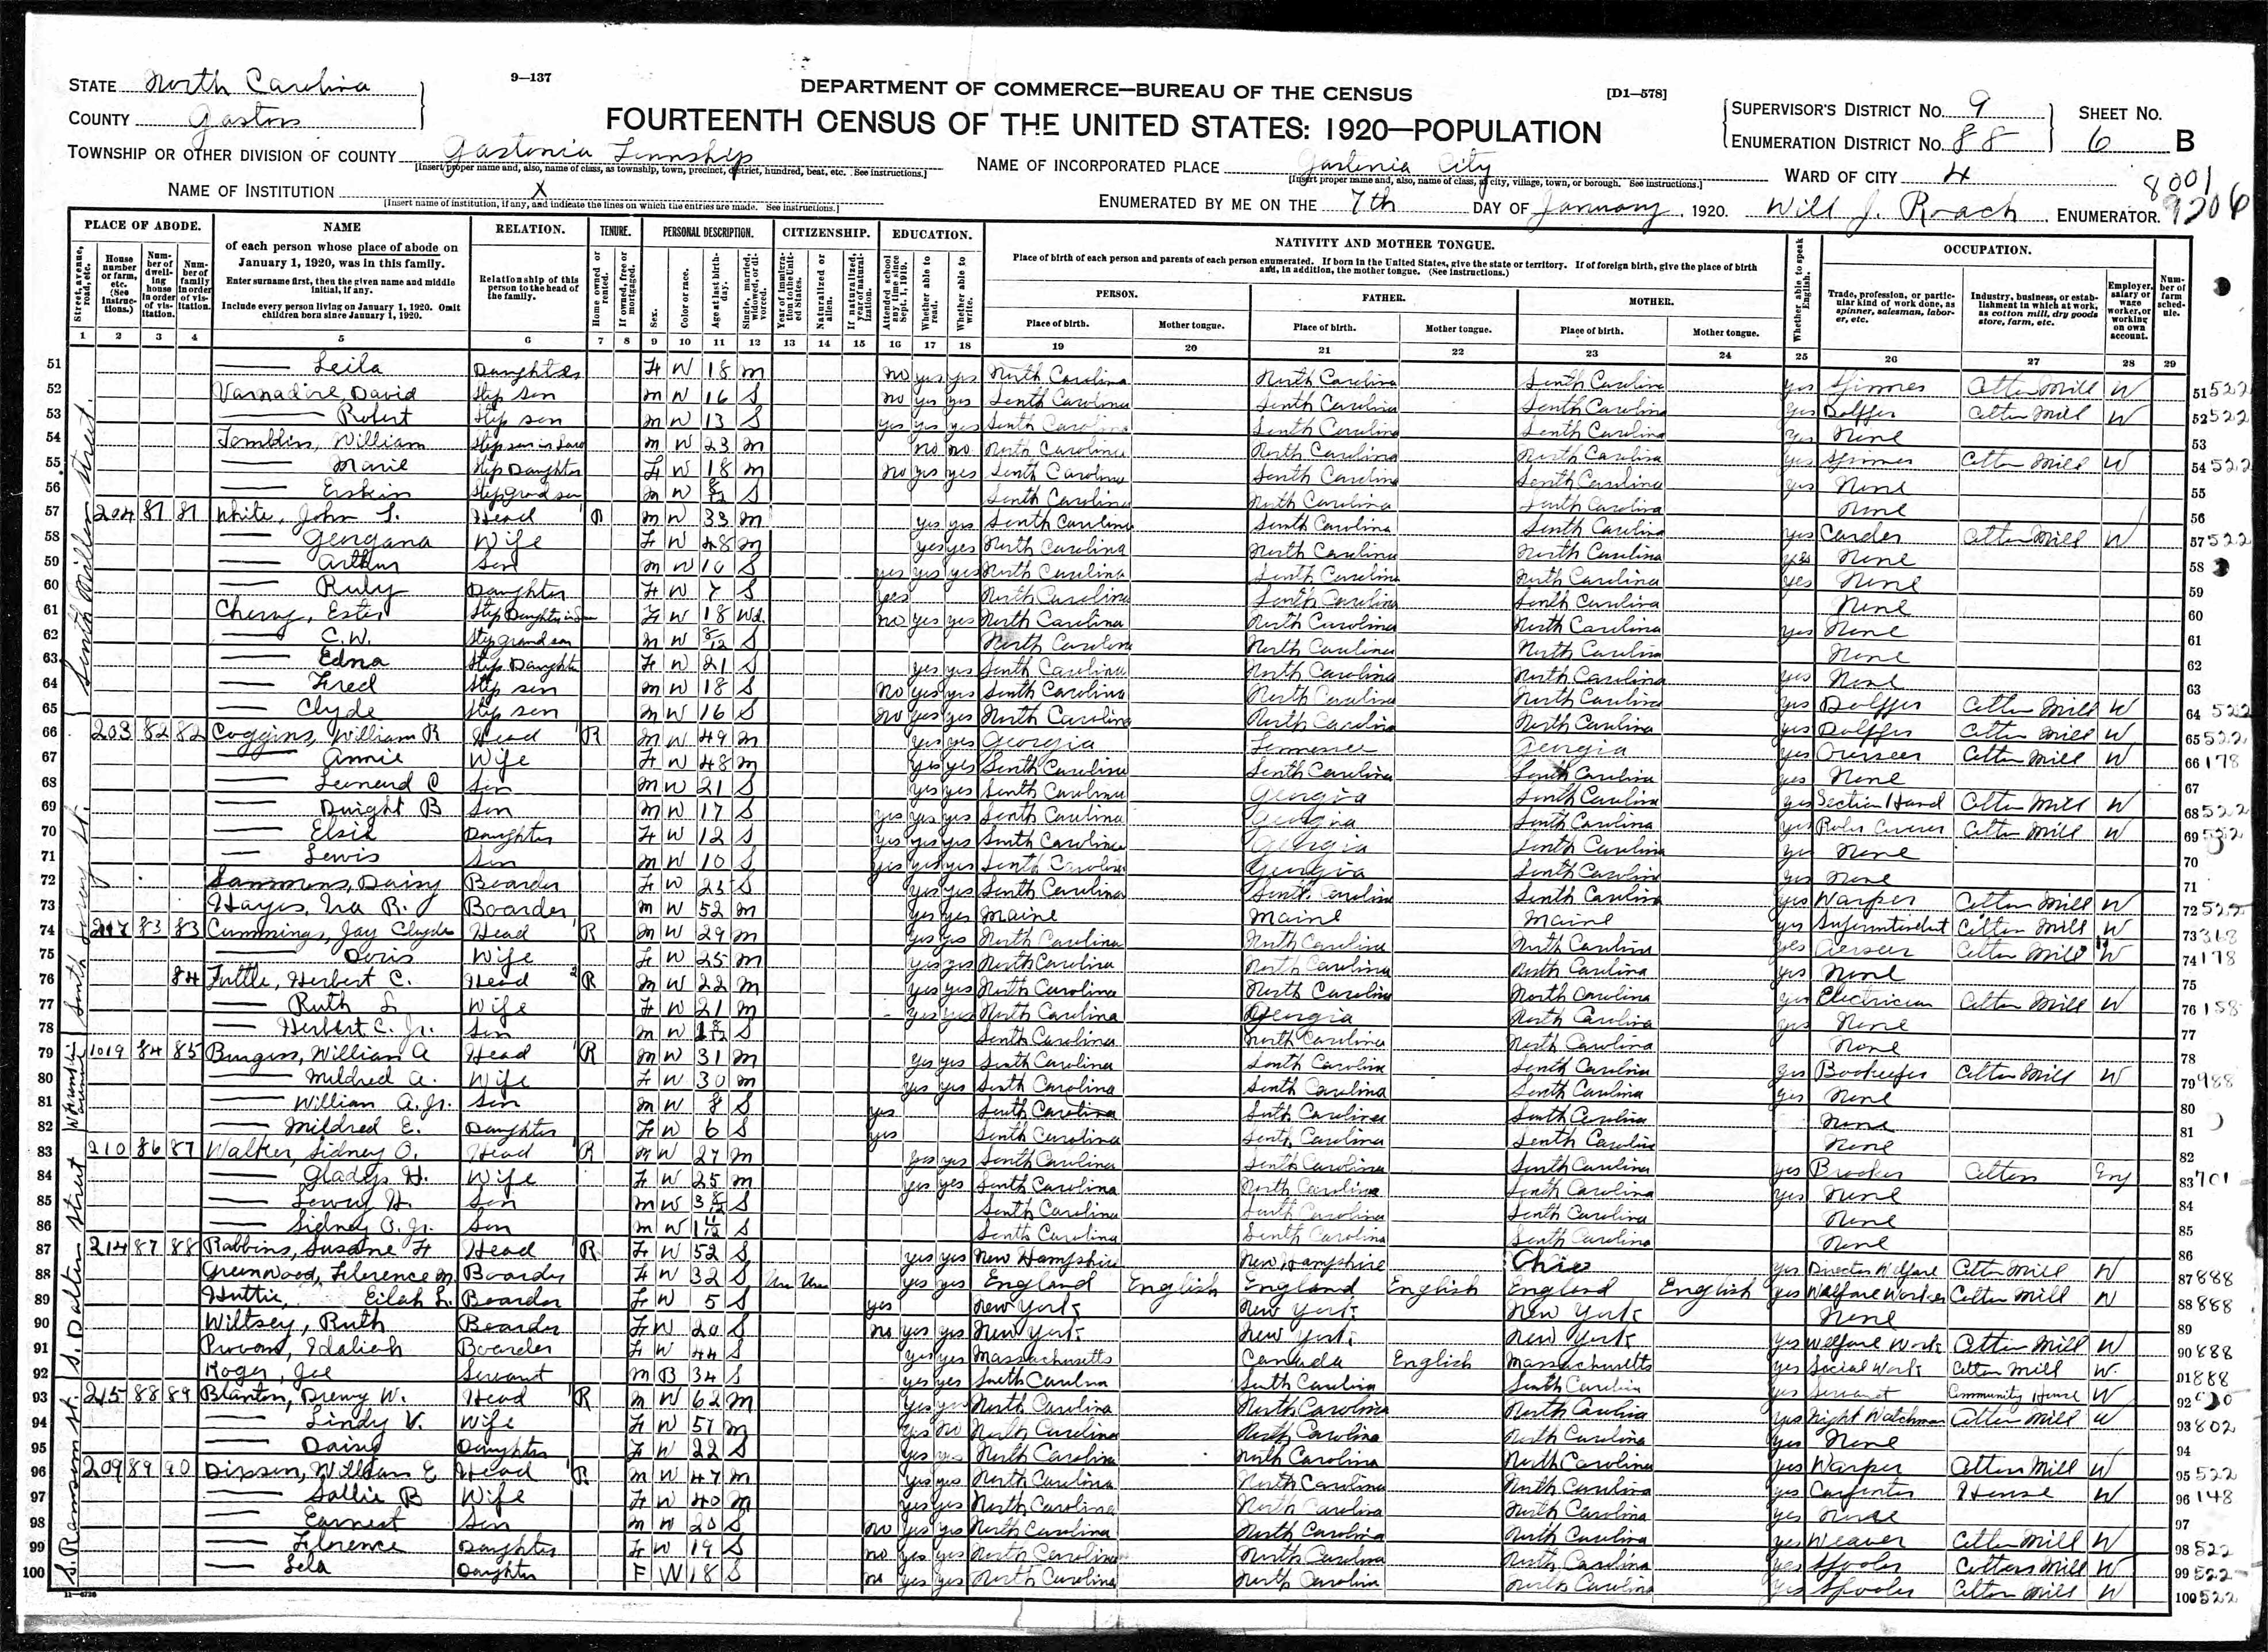 9—137
DEPARTMENT OF COMMERCE—BUREAU OF THE CENSUS
[D1—578]
FOURTEENTH CENSUS OF THE UNITED STATES: 1920—POPULATION
STATE North Carolina
COUNTY Gaston
TOWNSHIP OR OTHER DIVISION OF COUNTY Gastonia Township
[Insert proper name and, also, name of class, as township, town, precinct, district, hundred, beat, etc. See instructions.]
NAME OF INSTITUTION X
[Insert name of institution, if any, and indicate the lines on which the entries are made. See instructions.]
NAME OF INCORPORATED PLACE Gastonia City
[Insert proper name and, also, name of class, as city, village, town, or borough. See instructions.]
ENUMERATED BY ME ON THE 7th DAY OF January, 1920. Will J. Roach, ENUMERATOR.
SUPERVISOR'S DISTRICT No. 9
ENUMERATION DISTRICT No. 88
SHEET No. 6 B
WARD OF CITY 4
8001
9206
PLACE OF ABODE. NAME RELATION. TENURE. PERSONAL DESCRIPTION. CITIZENSHIP. EDUCATION. NATIVITY AND MOTHER TONGUE. OCCUPATION.
Street, avenue, road, etc.
House number or farm, etc. (See instructions.)
Number of dwelling house in order of visitation.
Number of family in order of visitation.
of each person whose place of abode on January 1, 1920, was in this family.
Enter surname first, then the given name and middle initial, if any.
Include every person living on January 1, 1920. Omit children born since January 1, 1920.
Relationship of this person to the head of the family.
Home owned or rented.
If owned, free or mortgaged.
Sex.
Color or race.
Age at last birthday.
Single, married, widowed, or divorced.
Year of immigration to the United States.
Naturalized or alien.
If naturalized, year of naturalization.
Attended school any time since Sept. 1, 1919.
Whether able to read.
Whether able to write.
Place of birth of each person and parents of each person enumerated. If born in the United States, give the state or territory. If of foreign birth, give the place of birth and, in addition, the mother tongue. (See instructions.)
PERSON. FATHER. MOTHER.
Place of birth. Mother tongue. Place of birth. Mother tongue. Place of birth. Mother tongue.
Whether able to speak English.
Trade, profession, or particular kind of work done, as spinner, salesman, laborer, etc.
Industry, business, or establishment in which at work, as cotton mill, dry goods store, farm, etc.
Employer, salary or wage worker, or working on own account.
Number of farm schedule.
1 2 3 4 5 6 7 8 9 10 11 12 13 14 15 16 17 18 19 20 21 22 23 24 25 26 27 28 29
51 Leila Daughter F W 18 m no yes yes North Carolina North Carolina South Carolina yes Spinner Cotton Mill W 51 522
52 David Step son m W 16 S no yes yes South Carolina South Carolina South Carolina yes Doffer Cotton Mill W 52 522
53 Robert Step son m W 13 S yes yes yes South Carolina South Carolina South Carolina yes None 53
54 William Step son in law m W 23 m no no North Carolina North Carolina North Carolina yes Spinner Cotton Mill W 54 522
55 Marie Step Daughter F W 18 m no yes yes South Carolina South Carolina South Carolina yes None 55
56 Erskin Step grand son m W 8/12 S South Carolina North Carolina South Carolina None 56
57 204 81 81 White, John Head R m W 33 m yes yes South Carolina South Carolina South Carolina yes Carder Cotton Mill W 57 522
58 Georgana Wife F W 48 m yes yes North Carolina North Carolina North Carolina yes None 58
59 Arthur Son m W 10 S yes yes yes North Carolina South Carolina North Carolina yes None 59
60 Ruby Daughter F W 7 S yes North Carolina South Carolina South Carolina None 60
61 Ester Step Daughter in law F W 18 Wd. no yes yes North Carolina North Carolina North Carolina yes None 61
62 C. W. Step grand son m W 8/12 S North Carolina North Carolina North Carolina None 62
63 Edna Step Daughter F W 21 S yes yes South Carolina North Carolina North Carolina yes None 63
64 Fred Step son m W 18 S no yes yes South Carolina North Carolina North Carolina yes Doffer Cotton Mill W 64 522
65 Clyde Step son m W 16 S no yes yes North Carolina North Carolina North Carolina yes Doffer Cotton Mill W 65 522
66 203 82 82 Coggins, William R Head R m W 49 m yes yes Georgia Georgia yes Overseer Cotton Mill W 66 178
67 Annie Wife F W 48 m yes yes South Carolina South Carolina South Carolina yes None 67
68 Leonard C Son m W 21 S yes yes South Carolina Georgia South Carolina yes Section Hand Cotton Mill W 68 522
69 Dwight B Son m W 17 S yes yes yes South Carolina Georgia South Carolina yes Cotton Mill W 69 522
70 Elsie Daughter F W 12 S yes yes yes South Carolina Georgia South Carolina yes None 70
71 Lewis Son m W 10 S yes yes yes South Carolina Georgia South Carolina yes None 71
72 Sammons, Daisy Boarder F W 23 S yes yes South Carolina South Carolina South Carolina yes Warper Cotton Mill W 72 522
73 Hayes, Ira R. Boarder m W 52 m yes yes Maine Maine Maine yes Superintendent Cotton Mill W 73 368
74 217 83 83 Cummings, Jay Clyde Head R m W 29 m yes yes North Carolina North Carolina North Carolina yes Overseer Cotton Mill W 74 178
75 Doris Wife F W 25 m yes yes North Carolina North Carolina North Carolina yes None 75
76 84 Tuttle, Herbert C. Head R m W 22 m yes yes North Carolina North Carolina North Carolina yes Electrician Cotton Mill W 76 158
77 Ruth L Wife F W 21 m yes yes North Carolina Georgia North Carolina yes None 77
78 Herbert C. Jr. Son m W S South Carolina North Carolina North Carolina None 78
79 1019 84 85 Burgess, William A Head R m W 31 m yes yes South Carolina South Carolina South Carolina yes Bookeeper Cotton Mill W 79 988
80 Mildred A. Wife F W 30 m yes yes South Carolina South Carolina South Carolina yes None 80
81 William A. Jr. Son m W 8 S yes South Carolina South Carolina South Carolina None 81
82 Mildred E. Daughter F W 6 S yes South Carolina South Carolina South Carolina None 82
83 210 86 87 Walker, Sidney O. Head R m W 27 m yes yes South Carolina South Carolina South Carolina yes Brooker Cotton Em 83 701
84 Gladys H. Wife F W 25 m yes yes South Carolina North Carolina South Carolina yes None 84
85 Lowry H. Son m W S South Carolina South Carolina South Carolina None 85
86 Sidney O. Jr. Son m W S South Carolina South Carolina South Carolina None 86
87 214 87 88 Head R F W 52 S yes yes New Hampshire New Hampshire Ohio yes Director Welfare Cotton Mill W 87 888
88 Greenwood, Florence M Boarder F W 32 S Un Un yes yes England English England English England English yes Welfare Worker Cotton Mill W 88 888
89 Eilah L. Boarder F W 5 S yes New York New York New York None 89
90 Wiltsey, Ruth Boarder F W 20 S no yes yes New York New York New York yes Welfare Work Cotton Mill W 90 888
91 Boarder F W 44 S yes yes Massachusetts Canada English Massachusetts yes Social Work Cotton Mill W 91 888
92 Roger, Joe Servant m B 34 S yes yes South Carolina South Carolina South Carolina yes Servant Community House W 92
93 215 88 89 Blanton, Drewy W. Head R m W 62 m yes yes North Carolina North Carolina North Carolina yes Night Watchman Cotton Mill W 93 802
94 Lindy V. Wife F W 57 m yes no North Carolina North Carolina North Carolina yes None 94
95 Daisy Daughter F W 22 S yes yes North Carolina North Carolina North Carolina yes Warper Cotton Mill W 95 522
96 209 89 90 Dixson, William E Head R m W 47 m yes yes North Carolina North Carolina North Carolina yes Carpenter House W 96 148
97 Sallie B Wife F W 40 m yes yes North Carolina North Carolina North Carolina yes None 97
98 Earnest Son m W 20 S no yes yes North Carolina North Carolina North Carolina yes Weaver Cotton Mill W 98 522
99 Florence Daughter F W 19 S no yes yes North Carolina North Carolina North Carolina yes Spooler Cotton Mill W 99 522
100 Lela Daughter F W 18 S no yes yes North Carolina North Carolina North Carolina yes Spooler Cotton Mill W 100 522
S. Dalton Street
S. Ransom St.
11—6726